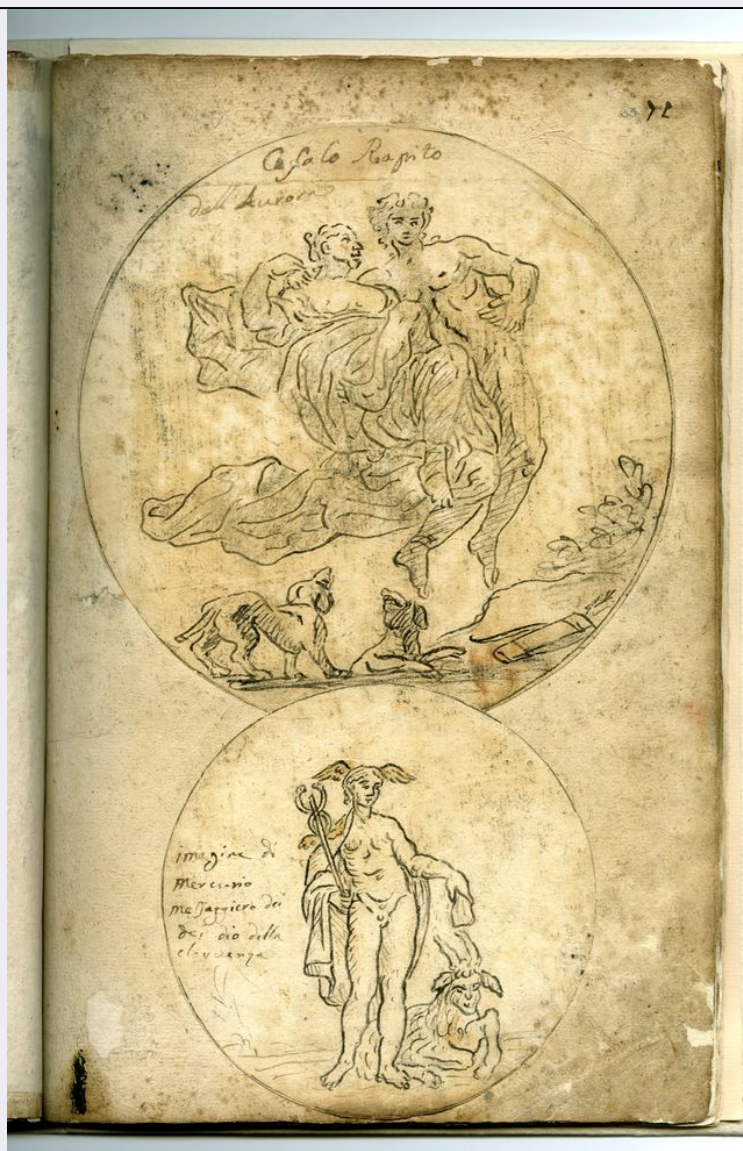 72
Cefalo Rapito
dall'Aurora
imagine di
Mercurio
messaggiero dei
dei dio della
eloquenza